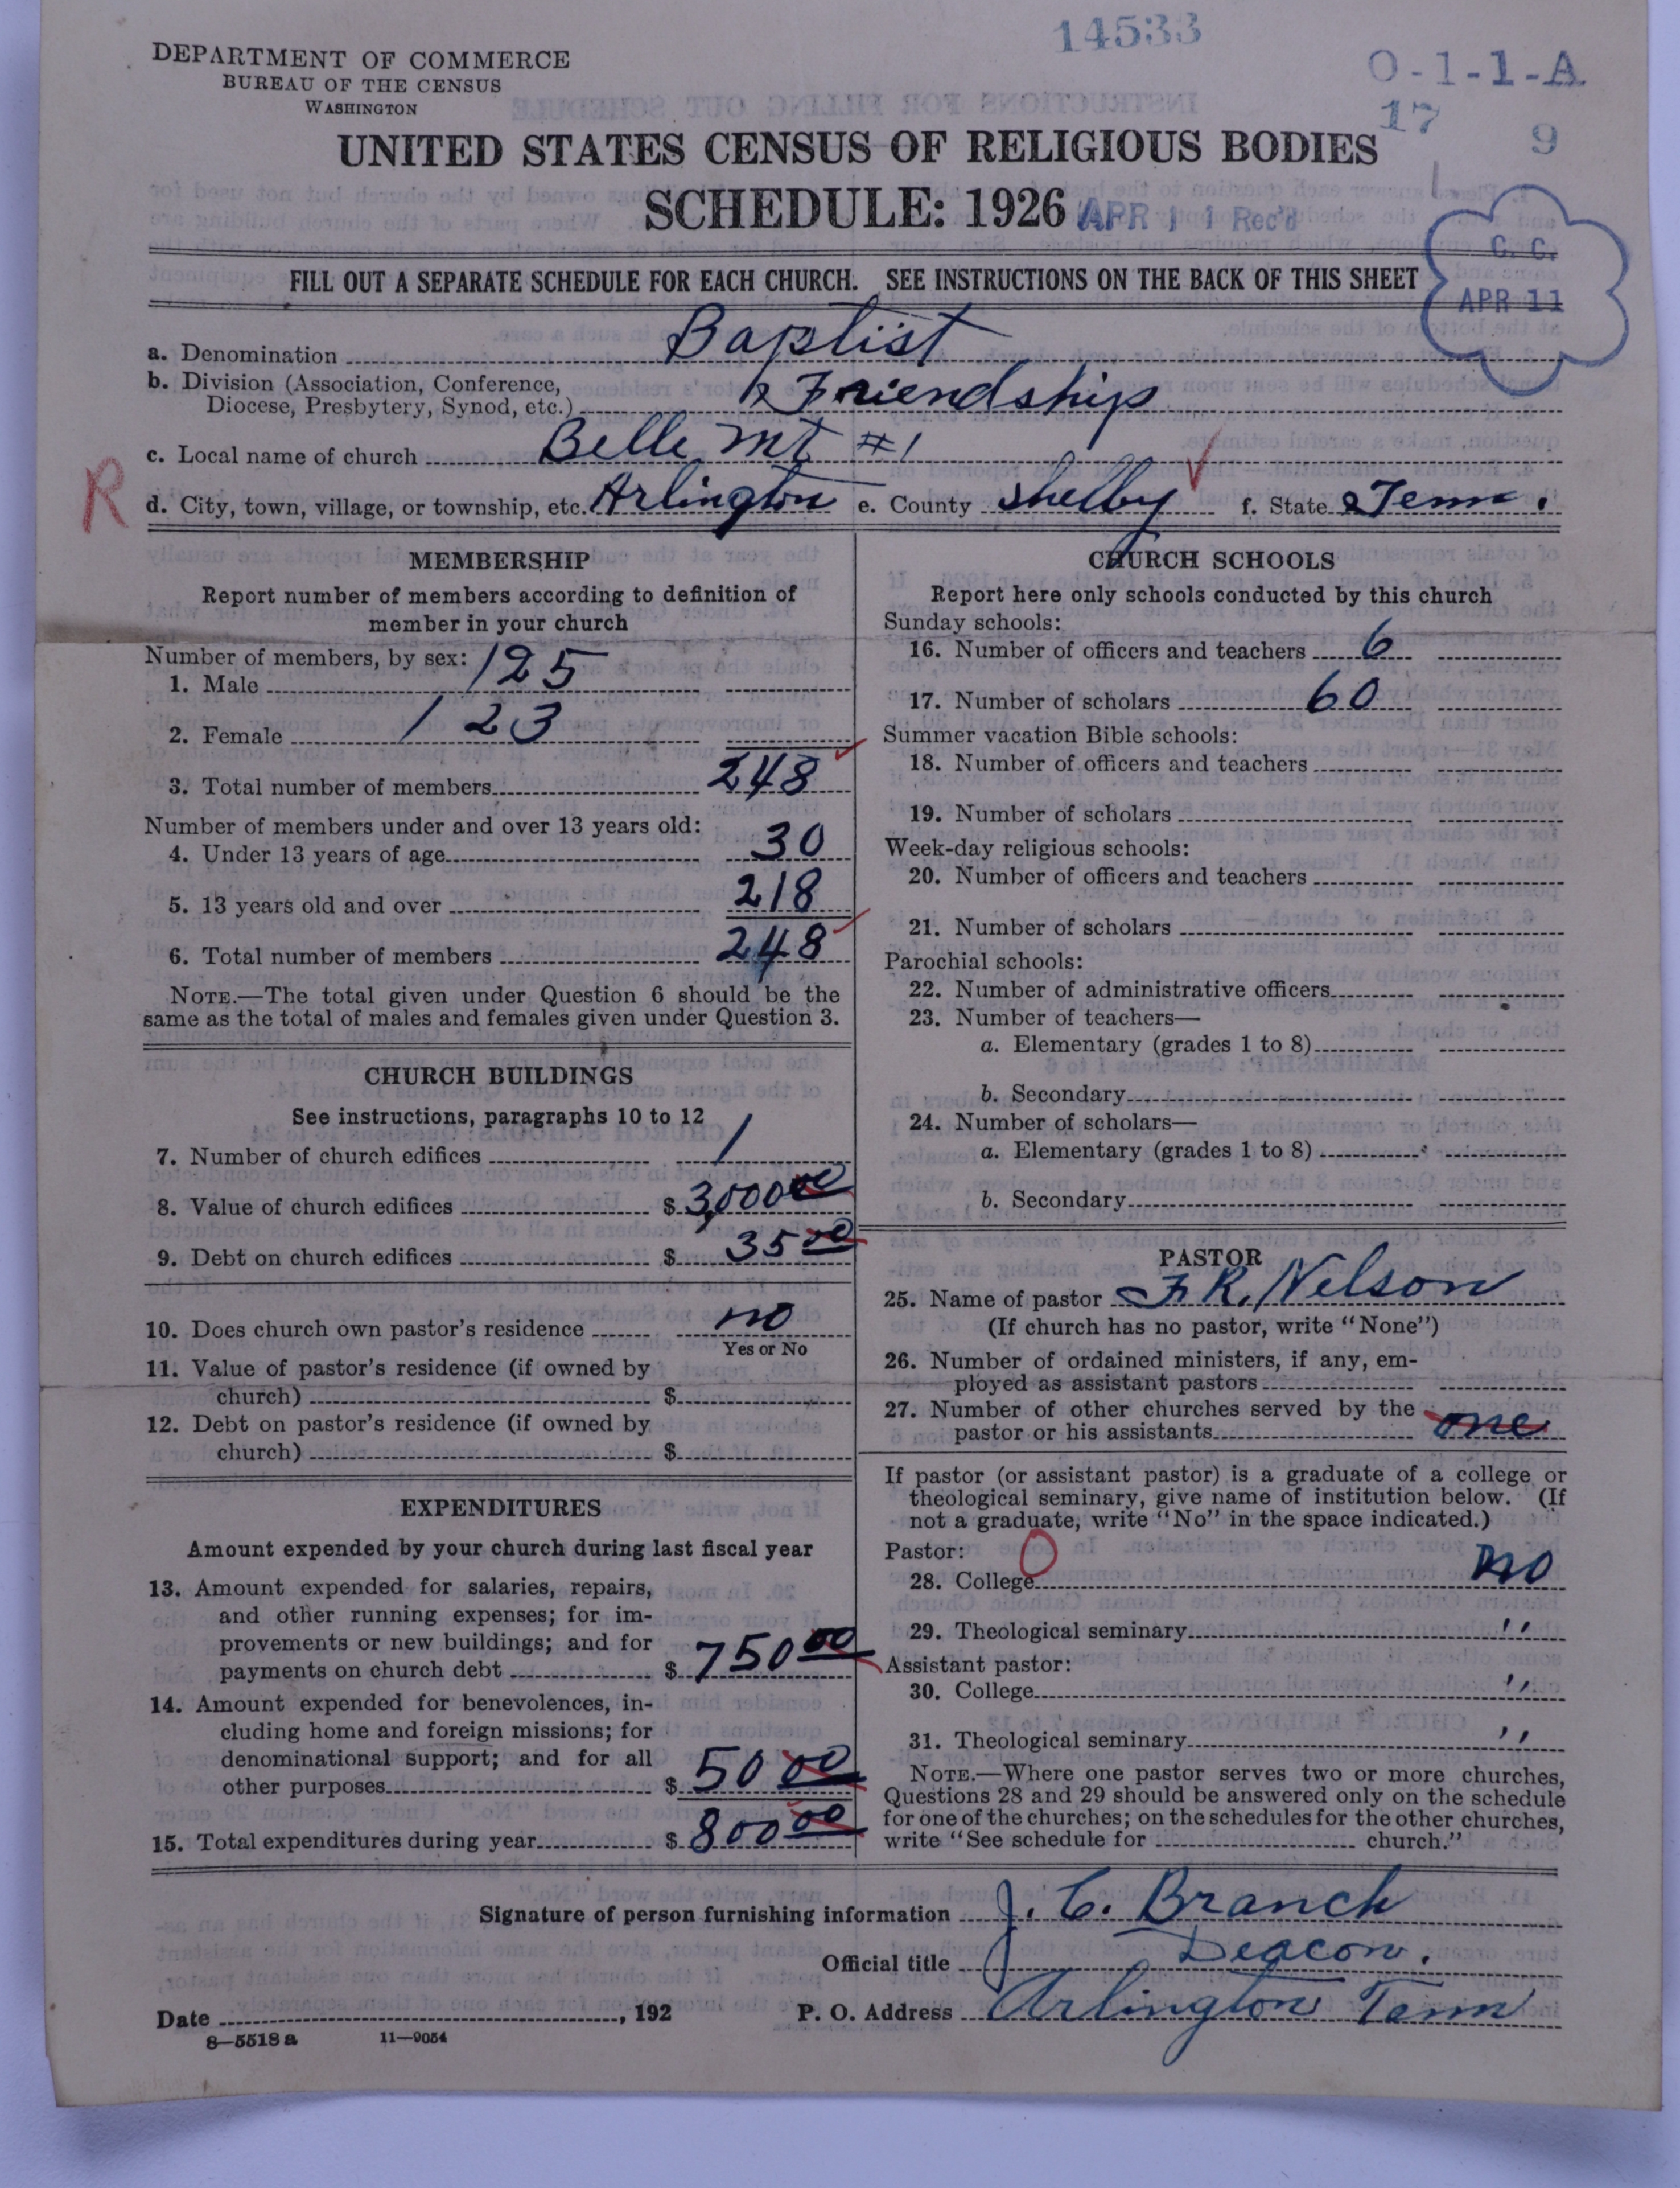 14533
DEPARTMENT OF COMMERCE
BUREAU OF THE CENSUS
WASHINGTON
O-1-1-A
17 9
UNITED STATES CENSUS OF RELIGIOUS BODIES
SCHEDULE: 1926 APR 11 Rec'd
C. C.
APR 11
FILL OUT A SEPARATE SCHEDULE FOR EACH CHURCH. SEE INSTRUCTIONS ON THE BACK OF THIS SHEET
a. Denomination Baptist
b. Division (Association, Conference,
Diocese, Presbytery, Synod, etc.) Friendship
c. Local name of church Belle Mt #1
R
d. City, town, village, or township, etc. Arlington e. County Shelby f. State Tenn.
MEMBERSHIP
Report number of members according to definition of
member in your church
Number of members, by sex:
1. Male 125
2. Female 123
3. Total number of members 248
Number of members under and over 13 years old:
4. Under 13 years of age 30
5. 13 years old and over 218
6. Total number of members 248
NOTE.—The total given under Question 6 should be the
same as the total of males and females given under Question 3.
CHURCH BUILDINGS
See instructions, paragraphs 10 to 12
7. Number of church edifices 1
8. Value of church edifices $ 3,000 00
9. Debt on church edifices $ 35 00
10. Does church own pastor's residence no
Yes or No
11. Value of pastor's residence (if owned by
church) $
12. Debt on pastor's residence (if owned by
church) $
EXPENDITURES
Amount expended by your church during last fiscal year
13. Amount expended for salaries, repairs,
and other running expenses; for im-
provements or new buildings; and for
payments on church debt $ 750 00
14. Amount expended for benevolences, in-
cluding home and foreign missions; for
denominational support; and for all
other purposes $ 50 00
15. Total expenditures during year $ 800 00
CHURCH SCHOOLS
Report here only schools conducted by this church
Sunday schools:
16. Number of officers and teachers 6
17. Number of scholars 60
Summer vacation Bible schools:
18. Number of officers and teachers
19. Number of scholars
Week-day religious schools:
20. Number of officers and teachers
21. Number of scholars
Parochial schools:
22. Number of administrative officers
23. Number of teachers—
a. Elementary (grades 1 to 8)
b. Secondary
24. Number of scholars—
a. Elementary (grades 1 to 8)
b. Secondary
PASTOR
25. Name of pastor F. R. Nelson
(If church has no pastor, write "None")
26. Number of ordained ministers, if any, em-
ployed as assistant pastors
27. Number of other churches served by the
pastor or his assistants one
If pastor (or assistant pastor) is a graduate of a college or
theological seminary, give name of institution below. (If
not a graduate, write "No" in the space indicated.)
Pastor: 0
28. College no
29. Theological seminary ''
Assistant pastor:
30. College ''
31. Theological seminary ''
NOTE.—Where one pastor serves two or more churches,
Questions 28 and 29 should be answered only on the schedule
for one of the churches; on the schedules for the other churches,
write "See schedule for church."
Signature of person furnishing information J. C. Branch
Official title Deacon.
Date , 192 P. O. Address Arlington Tenn
8—5518 a 11—9054